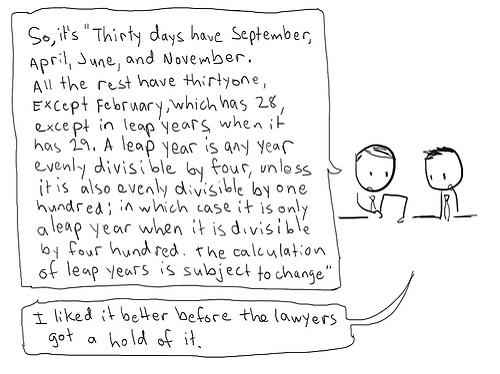 So, it's "Thirty days have September,
April, June, and November.
All the rest have thirtyone,
Except February, which has 28,
except in leap years, when it
has 29. A leap year is any year
evenly divisible by four, unless
it is also evenly divisible by one
hundred; in which case it is only
a leap year when it is divisible
by four hundred. The calculation
of leap years is subject to change"
I liked it better before the lawyers
got a hold of it.